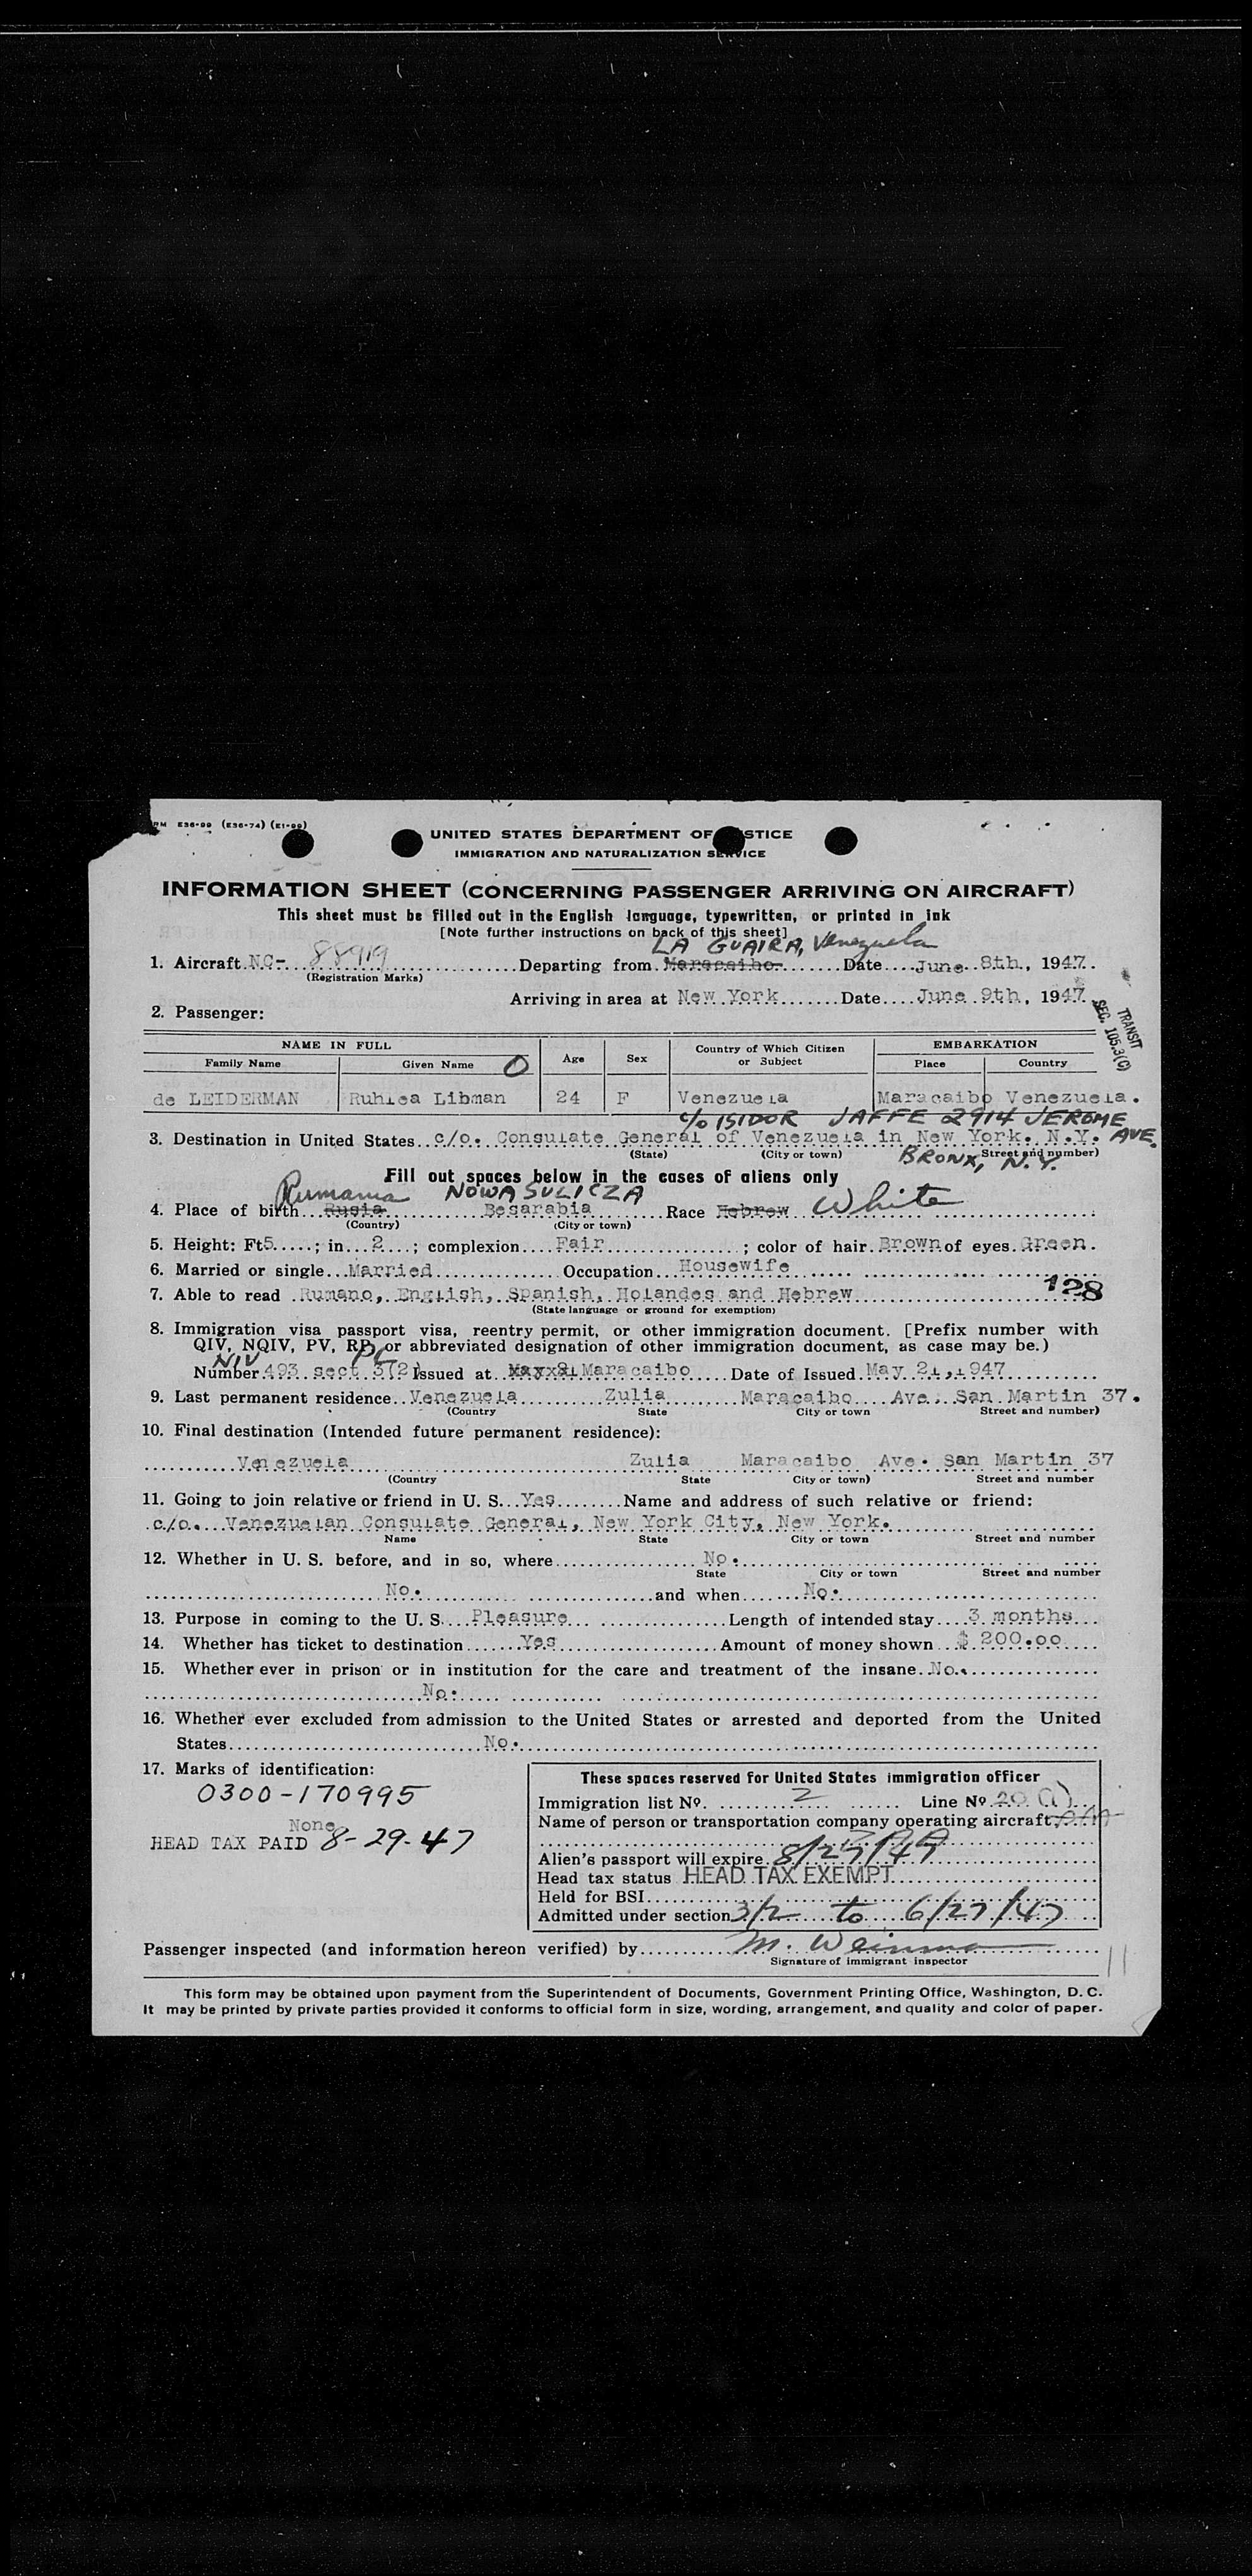 RM E36-99 (E36-74) (E1-99)
UNITED STATES DEPARTMENT OF JUSTICE
IMMIGRATION AND NATURALIZATION SERVICE
INFORMATION SHEET (CONCERNING PASSENGER ARRIVING ON AIRCRAFT)
This sheet must be filled out in the English language, typewritten, or printed in ink
[Note further instructions on back of this sheet]
LA GUAIRA, Venezuela
1. Aircraft NC- 88919 Departing from Maracaibo. Date June 8th, 1947.
(Registration Marks)
Arriving in area at New York Date June 9th, 1947
TRANSIT
SEC. 105.3(C)
2. Passenger:
NAME IN FULL Age Sex Country of Which Citizen or Subject EMBARKATION
Family Name Given Name O Place Country
de LEIDERMAN Ruhlea Libman 24 F Venezuela Maracaibo Venezuela.
c/o ISIDOR JAFFE 2914 JEROME AVE.
3. Destination in United States c/o. Consulate General of Venezuela in New York. N.Y.
(State) (City or town) Street and number)
BRONX, N.Y.
Fill out spaces below in the cases of aliens only
Rumania NOWASULICZA
4. Place of birth Rusia Besarabia Race Hebrew White
(Country) (City or town)
5. Height: Ft 5 ; in 2 ; complexion Fair ; color of hair Brown of eyes Green.
6. Married or single Married Occupation Housewife
7. Able to read Rumano, English, Spanish, Holandes and Hebrew 128
(State language or ground for exemption)
8. Immigration visa passport visa, reentry permit, or other immigration document. [Prefix number with
QIV, NQIV, PV, RP, or abbreviated designation of other immigration document, as case may be.)
NIV
Number 493 sect 3(2) Issued at Maracaibo Date of Issued May 21,1947
9. Last permanent residence Venezuela Zulia Maracaibo Ave. San Martin 37.
(Country State City or town Street and number)
10. Final destination (Intended future permanent residence):
Venezuela Zulia Maracaibo Ave. San Martin 37
(Country State City or town) Street and number
11. Going to join relative or friend in U. S. Yes Name and address of such relative or friend:
c/o. Venezuelan Consulate General, New York City, New York.
Name State City or town Street and number
12. Whether in U. S. before, and in so, where No.
State City or town Street and number
No. and when No.
13. Purpose in coming to the U. S. Pleasure Length of intended stay 3 months
14. Whether has ticket to destination Yes Amount of money shown $ 200.00
15. Whether ever in prison or in institution for the care and treatment of the insane No.
No.
16. Whether ever excluded from admission to the United States or arrested and deported from the United
States No.
17. Marks of identification:
0300-170995
None
HEAD TAX PAID 8-29-47
These spaces reserved for United States immigration officer
Immigration list No. 2 Line No. 20 (1)
Name of person or transportation company operating aircraft
Alien's passport will expire 8/27/49
Head tax status HEAD TAX EXEMPT
Held for BSI
Admitted under section 3/2 to 6/27/47
Passenger inspected (and information hereon verified) by M. Weinman
Signature of immigrant inspector
11
This form may be obtained upon payment from the Superintendent of Documents, Government Printing Office, Washington, D. C.
It may be printed by private parties provided it conforms to official form in size, wording, arrangement, and quality and color of paper.